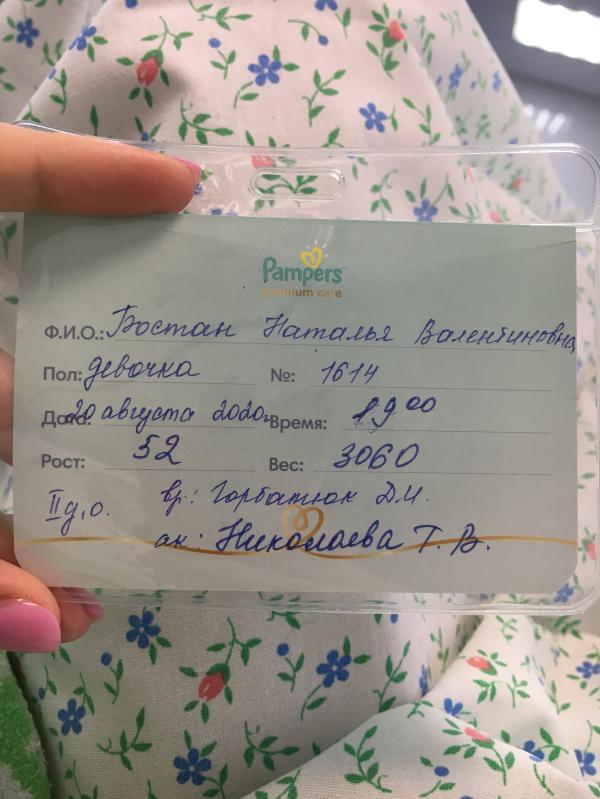 Pampers
Premium care
Ф.И.О.: Бостан Наталья Валентиновна
Пол: девочка №: 1614
Дата: 20 августа 2020г Время: 19 00
Рост: 52 Вес: 3060
II д.о. вр.: Горбатюк Д.И.
ак: Николаева Т. В.